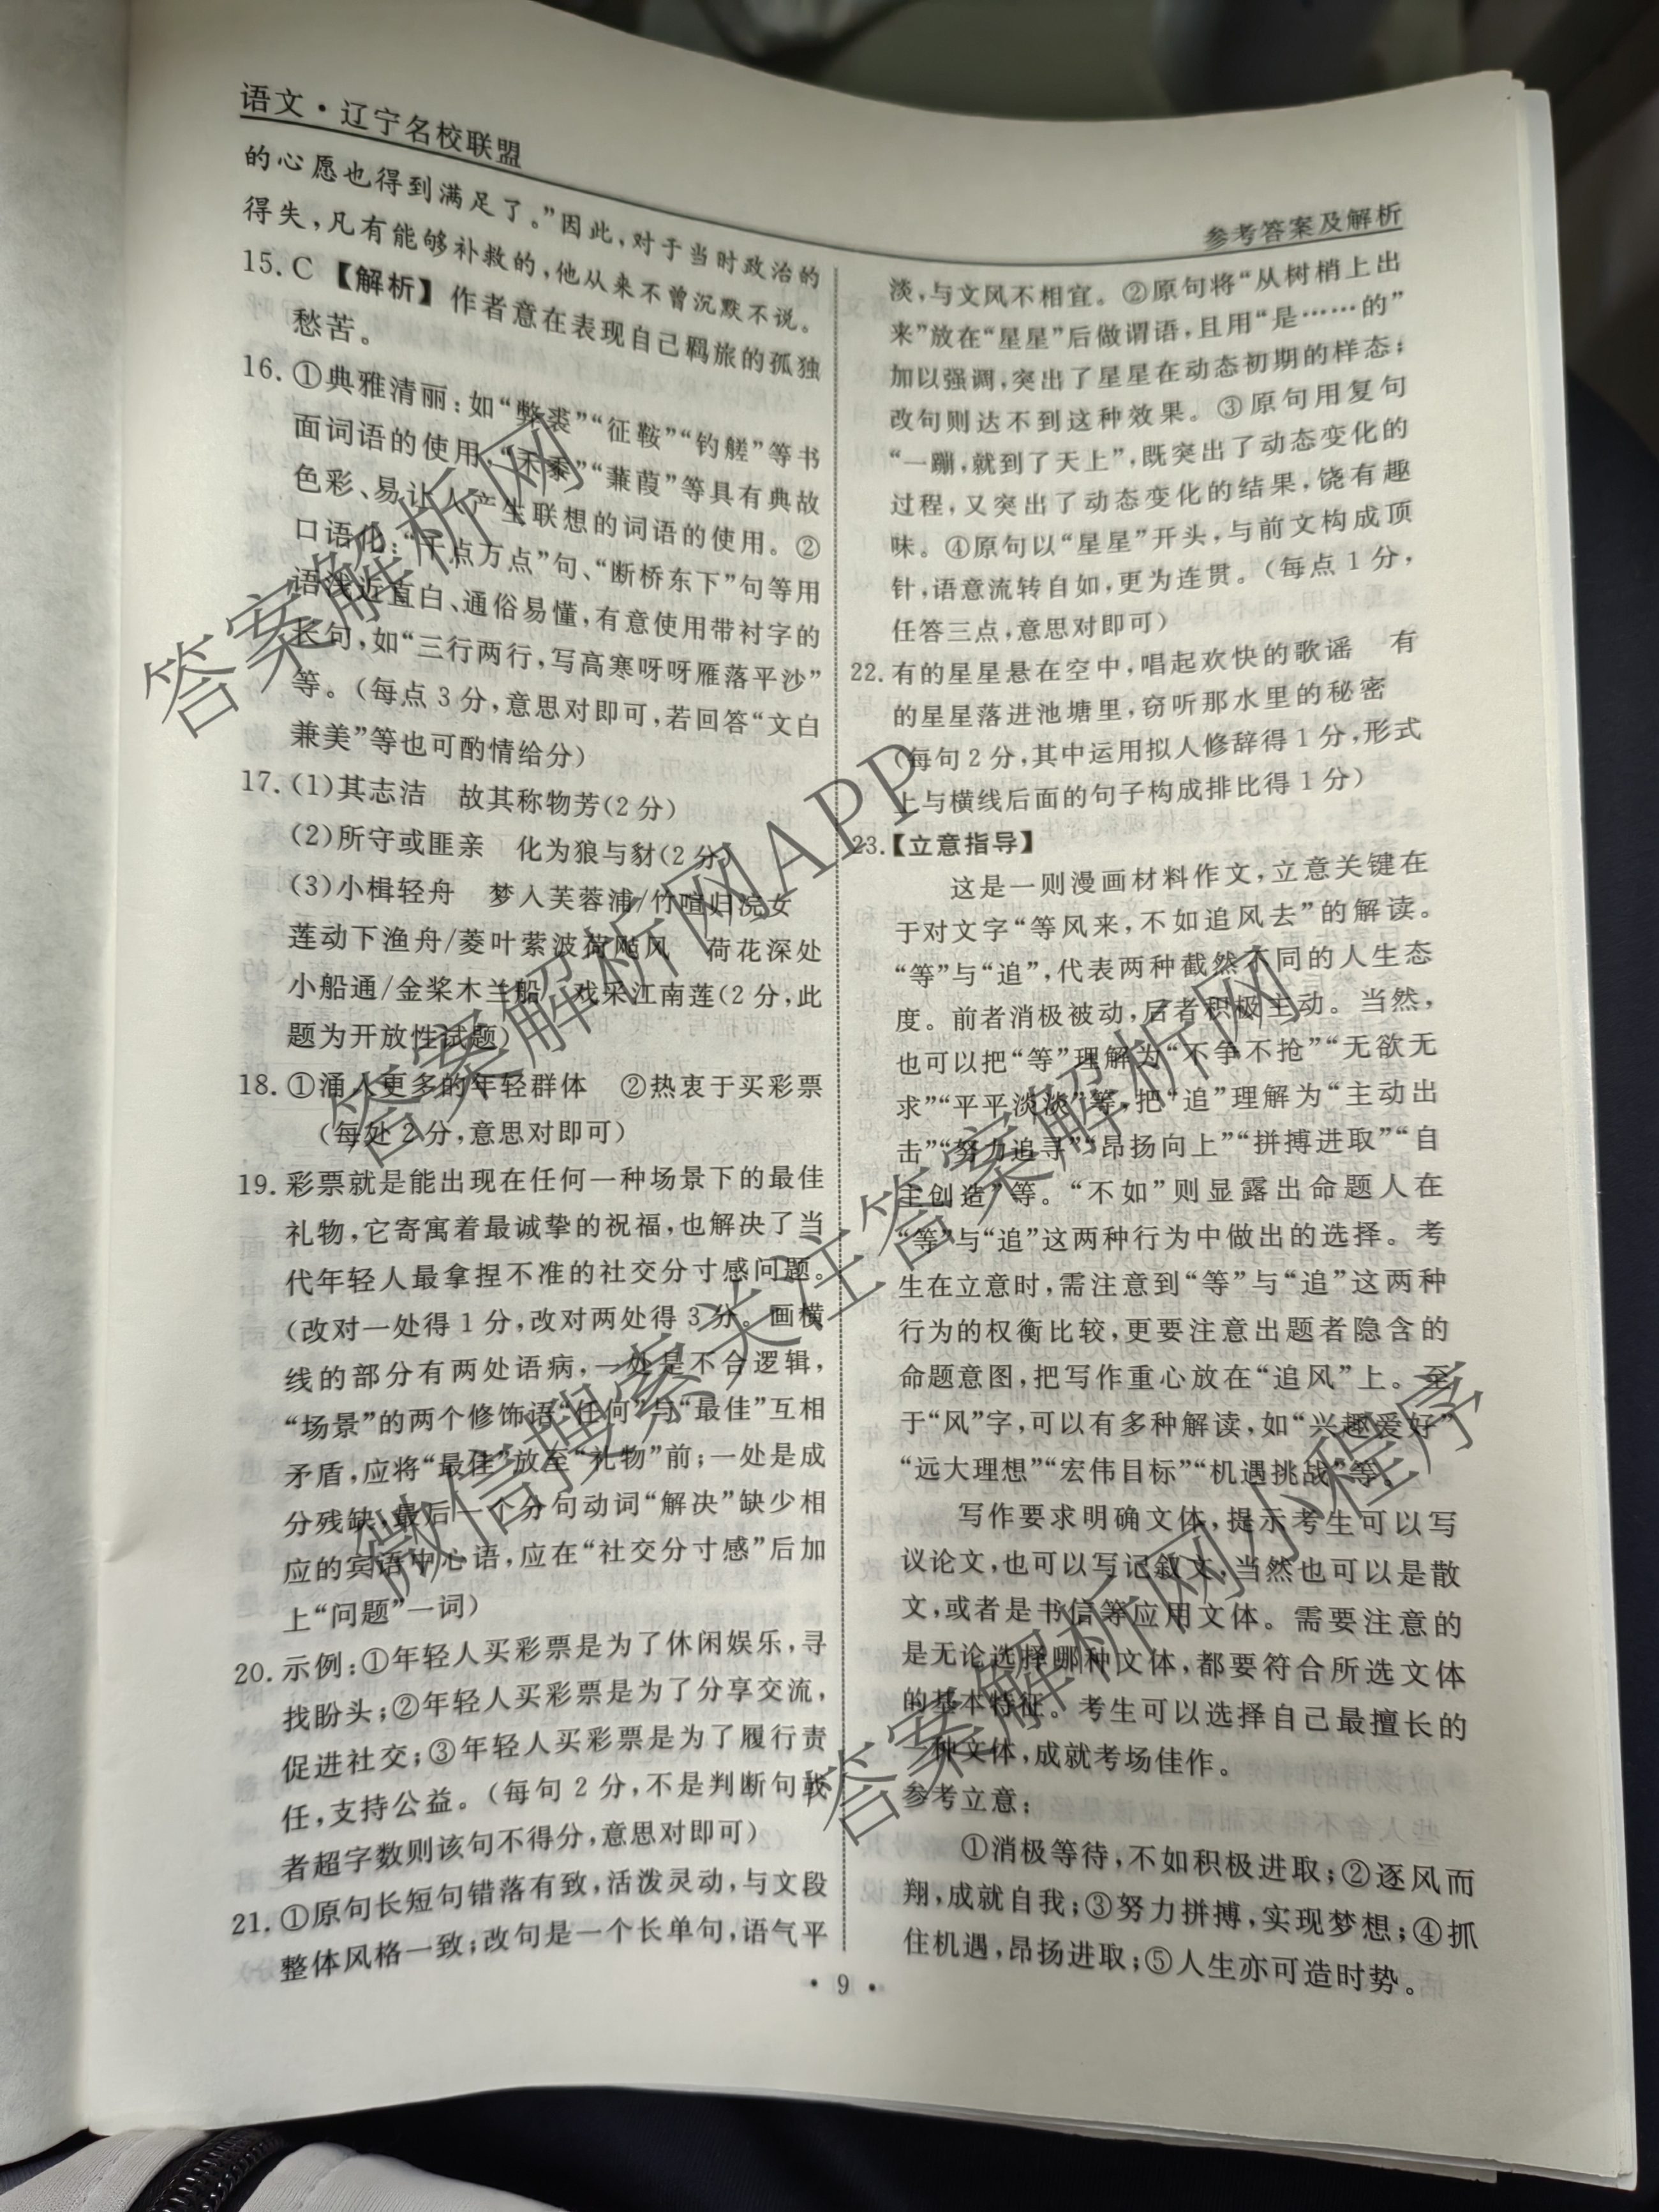 语文·辽宁名校联盟
参考答案及解析
的心愿也得到满足了。”因此,对于当时政治的
得失,凡有能够补救的,他从来不曾沉默不说。
15. C 【解析】作者意在表现自己羁旅的孤独
愁苦。
16. ①典雅清丽:如“弊裘”“征鞍”“钓艖”等书
面词语的使用;“禾黍”“蒹葭”等具有典故
色彩、易让人产生联想的词语的使用。②
口语化:“千点万点”句、“断桥东下”句等用
语浅近直白、通俗易懂,有意使用带衬字的
长句,如“三行两行,写高寒呀呀雁落平沙”
等。(每点3分,意思对即可,若回答“文白
兼美”等也可酌情给分)
17. (1)其志洁 故其称物芳(2分)
(2)所守或匪亲 化为狼与豺(2分)
(3)小楫轻舟 梦入芙蓉浦/竹喧归浣女
莲动下渔舟/菱叶萦波荷飐风 荷花深处
小船通/金桨木兰船 戏采江南莲(2分,此
题为开放性试题)
18. ①涌入更多的年轻群体 ②热衷于买彩票
(每处2分,意思对即可)
19. 彩票就是能出现在任何一种场景下的最佳
礼物,它寄寓着最诚挚的祝福,也解决了当
代年轻人最拿捏不准的社交分寸感问题。
(改对一处得1分,改对两处得3分。画横
线的部分有两处语病,一处是不合逻辑,
“场景”的两个修饰语“任何”与“最佳”互相
矛盾,应将“最佳”放至“礼物”前;一处是成
分残缺,最后一个分句动词“解决”缺少相
应的宾语中心语,应在“社交分寸感”后加
上“问题”一词)
20. 示例:①年轻人买彩票是为了休闲娱乐,寻
找盼头;②年轻人买彩票是为了分享交流,
促进社交;③年轻人买彩票是为了履行责
任,支持公益。(每句2分,不是判断句或
者超字数则该句不得分,意思对即可)
21. ①原句长短句错落有致,活泼灵动,与文段
整体风格一致;改句是一个长单句,语气平
淡,与文风不相宜。②原句将“从树梢上出
来”放在“星星”后做谓语,且用“是……的”
加以强调,突出了星星在动态初期的样态;
改句则达不到这种效果。③原句用复句
“一蹦,就到了天上”,既突出了动态变化的
过程,又突出了动态变化的结果,饶有趣
味。④原句以“星星”开头,与前文构成顶
针,语意流转自如,更为连贯。(每点1分,
任答三点,意思对即可)
22. 有的星星悬在空中,唱起欢快的歌谣 有
的星星落进池塘里,窃听那水里的秘密
(每句2分,其中运用拟人修辞得1分,形式
上与横线后面的句子构成排比得1分)
23. 【立意指导】
这是一则漫画材料作文,立意关键在
于对文字“等风来,不如追风去”的解读。
“等”与“追”,代表两种截然不同的人生态
度。前者消极被动,后者积极主动。当然,
也可以把“等”理解为“不争不抢”“无欲无
求”“平平淡淡”等,把“追”理解为“主动出
击”“努力追寻”“昂扬向上”“拼搏进取”“自
主创造”等。“不如”则显露出命题人在
“等”与“追”这两种行为中做出的选择。考
生在立意时,需注意到“等”与“追”这两种
行为的权衡比较,更要注意出题者隐含的
命题意图,把写作重心放在“追风”上。至
于“风”字,可以有多种解读,如“兴趣爱好”
“远大理想”“宏伟目标”“机遇挑战”等。
写作要求明确文体,提示考生可以写
议论文,也可以写记叙文,当然也可以是散
文,或者是书信等应用文体。需要注意的
是无论选择哪种文体,都要符合所选文体
的基本特征。考生可以选择自己最擅长的
一种文体,成就考场佳作。
参考立意:
①消极等待,不如积极进取;②逐风而
翔,成就自我;③努力拼搏,实现梦想;④抓
住机遇,昂扬进取;⑤人生亦可造时势。
· 9 ·
答案解析网
答案解析网APP
微信搜索关注答案解析网
答案解析网小程序